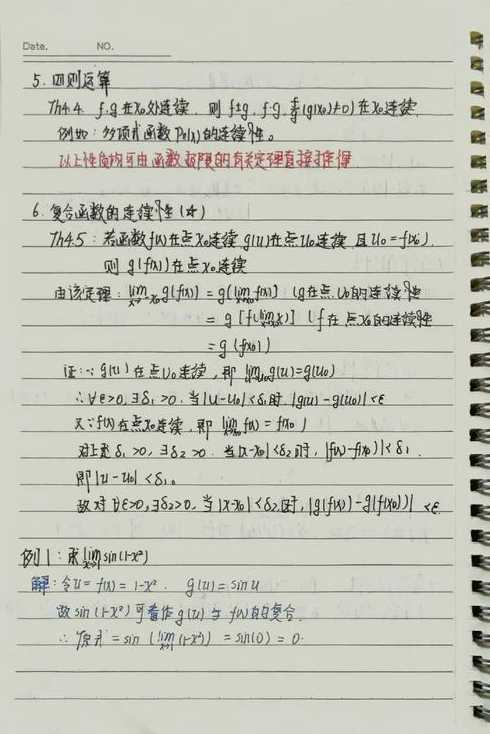 Date. NO.
5. 四则运算
Th4.4 f.g在x₀处连续，则f±g, f·g, f/g(g(x₀)≠0)在x₀连续
例如：多项式函数Pn(x)的连续性。
以上性质均可由函数极限的有关定理直接推得
6. 复合函数的连续性(☆)
Th4.5：若函数f(x)在点x₀连续 g(u)在点u₀连续 且u₀=f(x₀).
则g(f(x))在点x₀连续
由该定理：lim x→x₀ g(f(x)) = g(lim x→x₀ f(x)) (g在点u₀的连续性
= g[f(lim x→x₀ x)] (f在点x₀的连续性
= g(f(x₀))
证：∵g(u)在点u₀连续，即 lim u→u₀ g(u)=g(u₀)
∴∀ε>0,∃δ₁>0.当|u-u₀|<δ₁时.|g(u)-g(u₀)|<ε
又∵f(x)在点x₀连续，即 lim x→x₀ f(x)=f(x₀)
对上述δ₁>0,∃δ₂>0.当|x-x₀|<δ₂时，|f(x)-f(x₀)|<δ₁.
即|u-u₀|<δ₁。
故对∀ε>0,∃δ₂>0.当|x-x₀|<δ₂时，|g(f(x))-g(f(x₀))|<ε.
例1：求 lim x→1 sin(1-x²)
解：令u=f(x)=1-x². g(u)=sinu
故sin(1-x²)可看作g(u)与f(x)的复合.
∴原式=sin(lim x→1 (1-x²))=sin(0)=0.